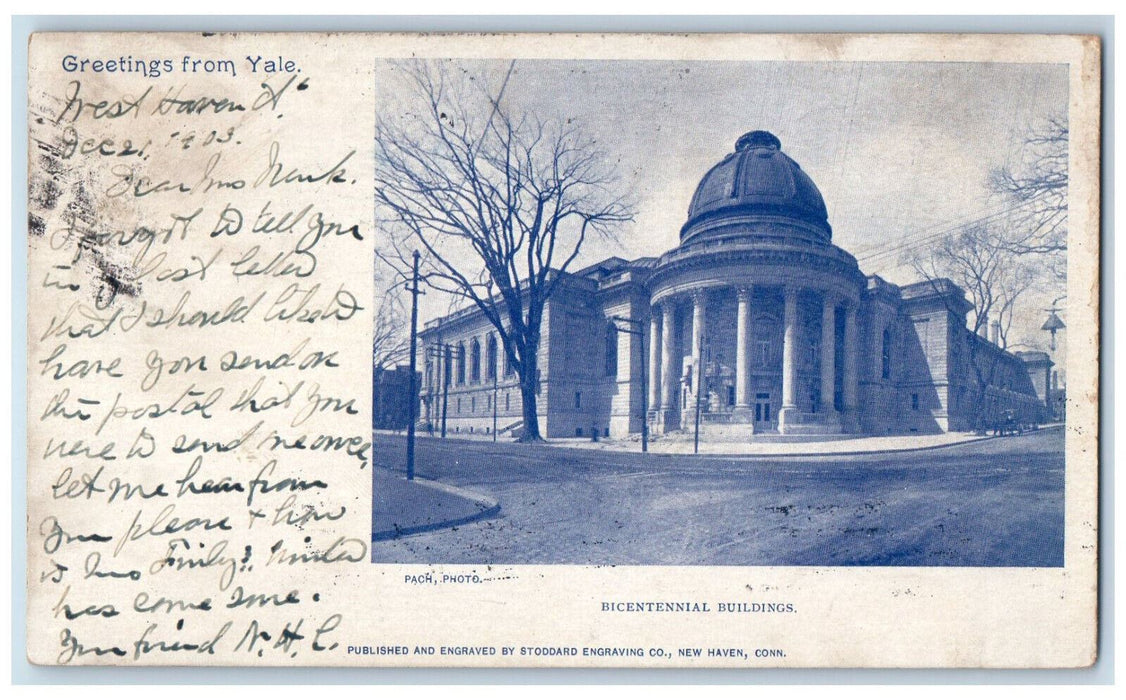 Greetings from Yale.
West Haven Ct.
Dec 21, 1903.
Dear Mrs
I forgot to tell you
in last letter
that I should like to
have you send on
the postal that you
were to send me once,
let me hear from
you please & how
is Mrs Finily? Winter
has come sure.
Your friend N. H. C.
PACH, PHOTO.
BICENTENNIAL BUILDINGS.
PUBLISHED AND ENGRAVED BY STODDARD ENGRAVING CO., NEW HAVEN, CONN.